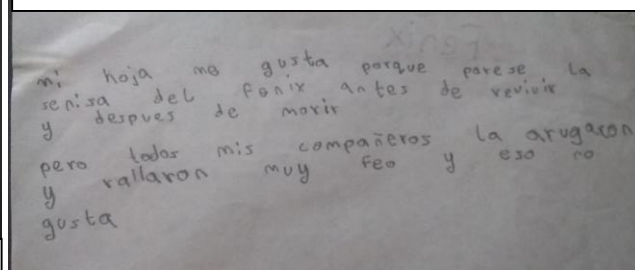 mi hoja me gusta porque parese la
senisa del fenix antes de revivir
y despues de morir
pero todos mis compañeros la arugaron
y rallaron muy feo y eso no
gusta